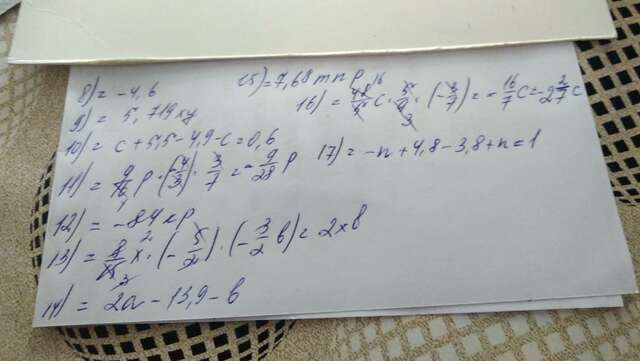 8) = -4,6
9) = 5,719xy
10) = c + 5,5 - 4,9 - c = 0,6
11) = 9/16 p · (-4/3) · 3/7 = -9/28 p
12) = -84xp
13) = 8/15 x · (-5/2) · (-3/2 b) = 2xb
14) = 2a - 13,9 - b
15) = 7,68mnp
16) = 48/5 c · 5/9 · (-3/7) = -16/7 c = -2 2/7 c
17) = -n + 4,8 - 3,8 + n = 1